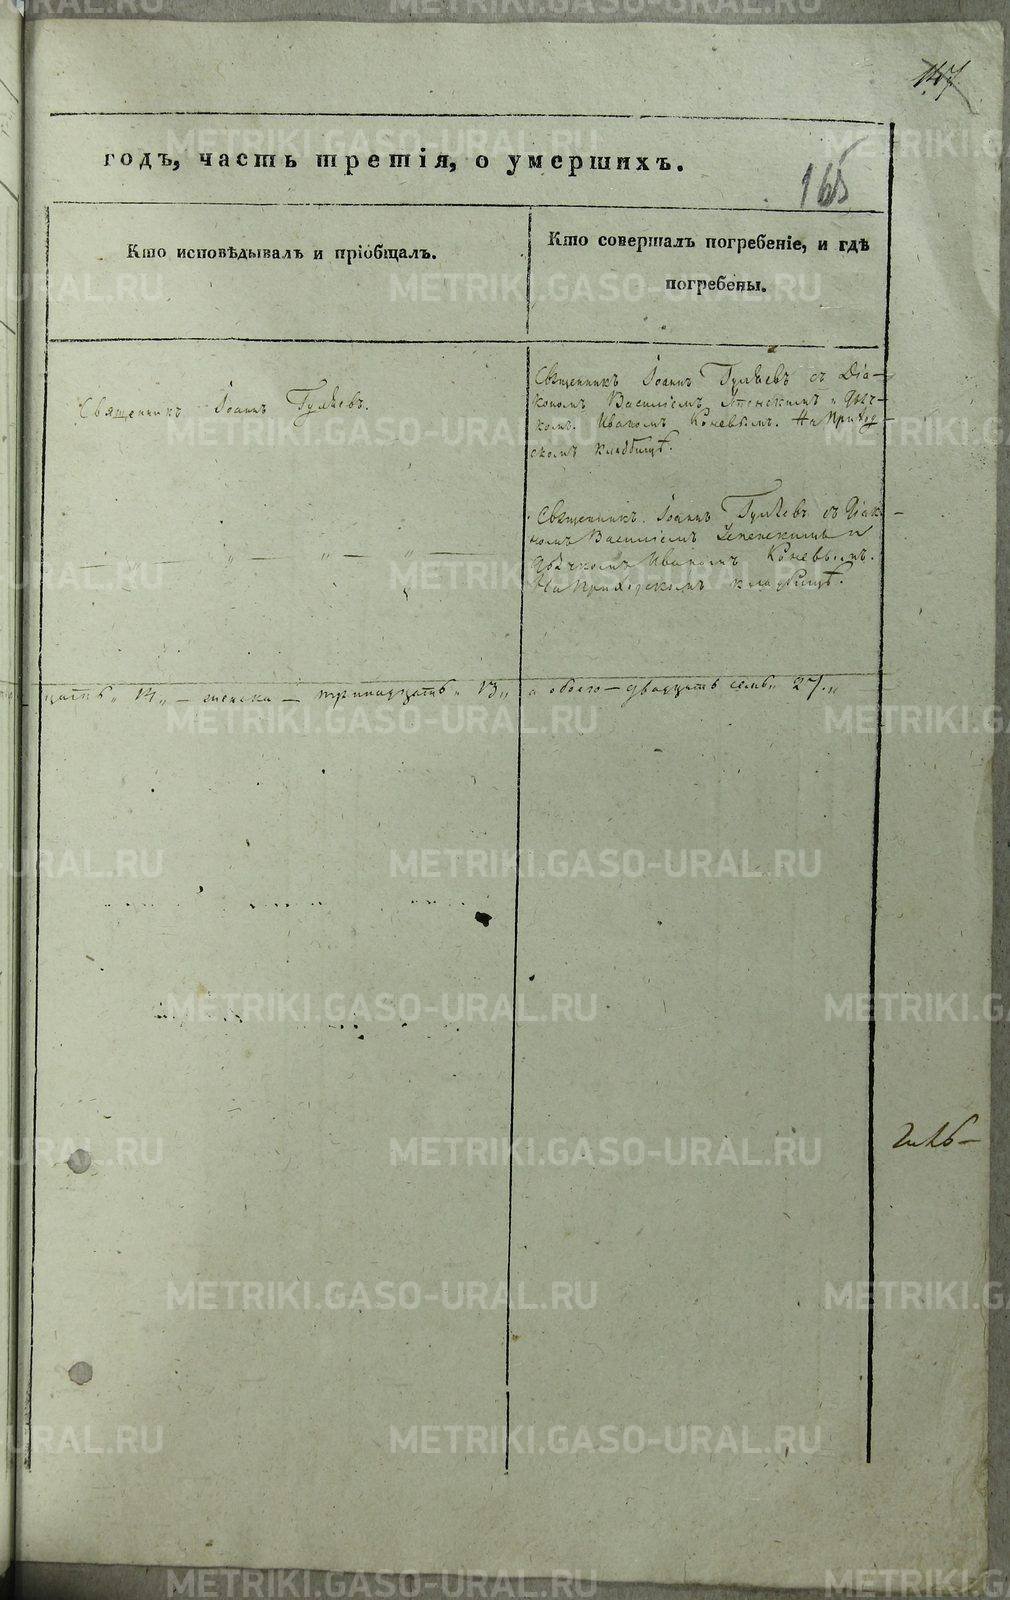 147
165
годъ, часть третія, о умершихъ.
Кто исповѣдывалъ и пріобщалъ.
Кто совершалъ погребеніе, и гдѣ
погребены.
Священникъ Іоаннъ Гуляевъ.
Священникъ Іоаннъ Гуляевъ съ Діа-
кономъ Василіемъ и Дьяч-
комъ Иваномъ Коневымъ. На Приход-
скомъ кладбищѣ.
„ — „ — „ —
Священникъ Іоаннъ Гуляевъ съ Діако-
номъ Василіемъ и
Дьячкомъ Иваномъ Коневымъ.
На Приходскомъ кладбищѣ.
цать „ 14 „ — женска — тринадцать „ 13 „ а обоего — двадцать семь „ 27 „
METRIKI.GASO-URAL.RU